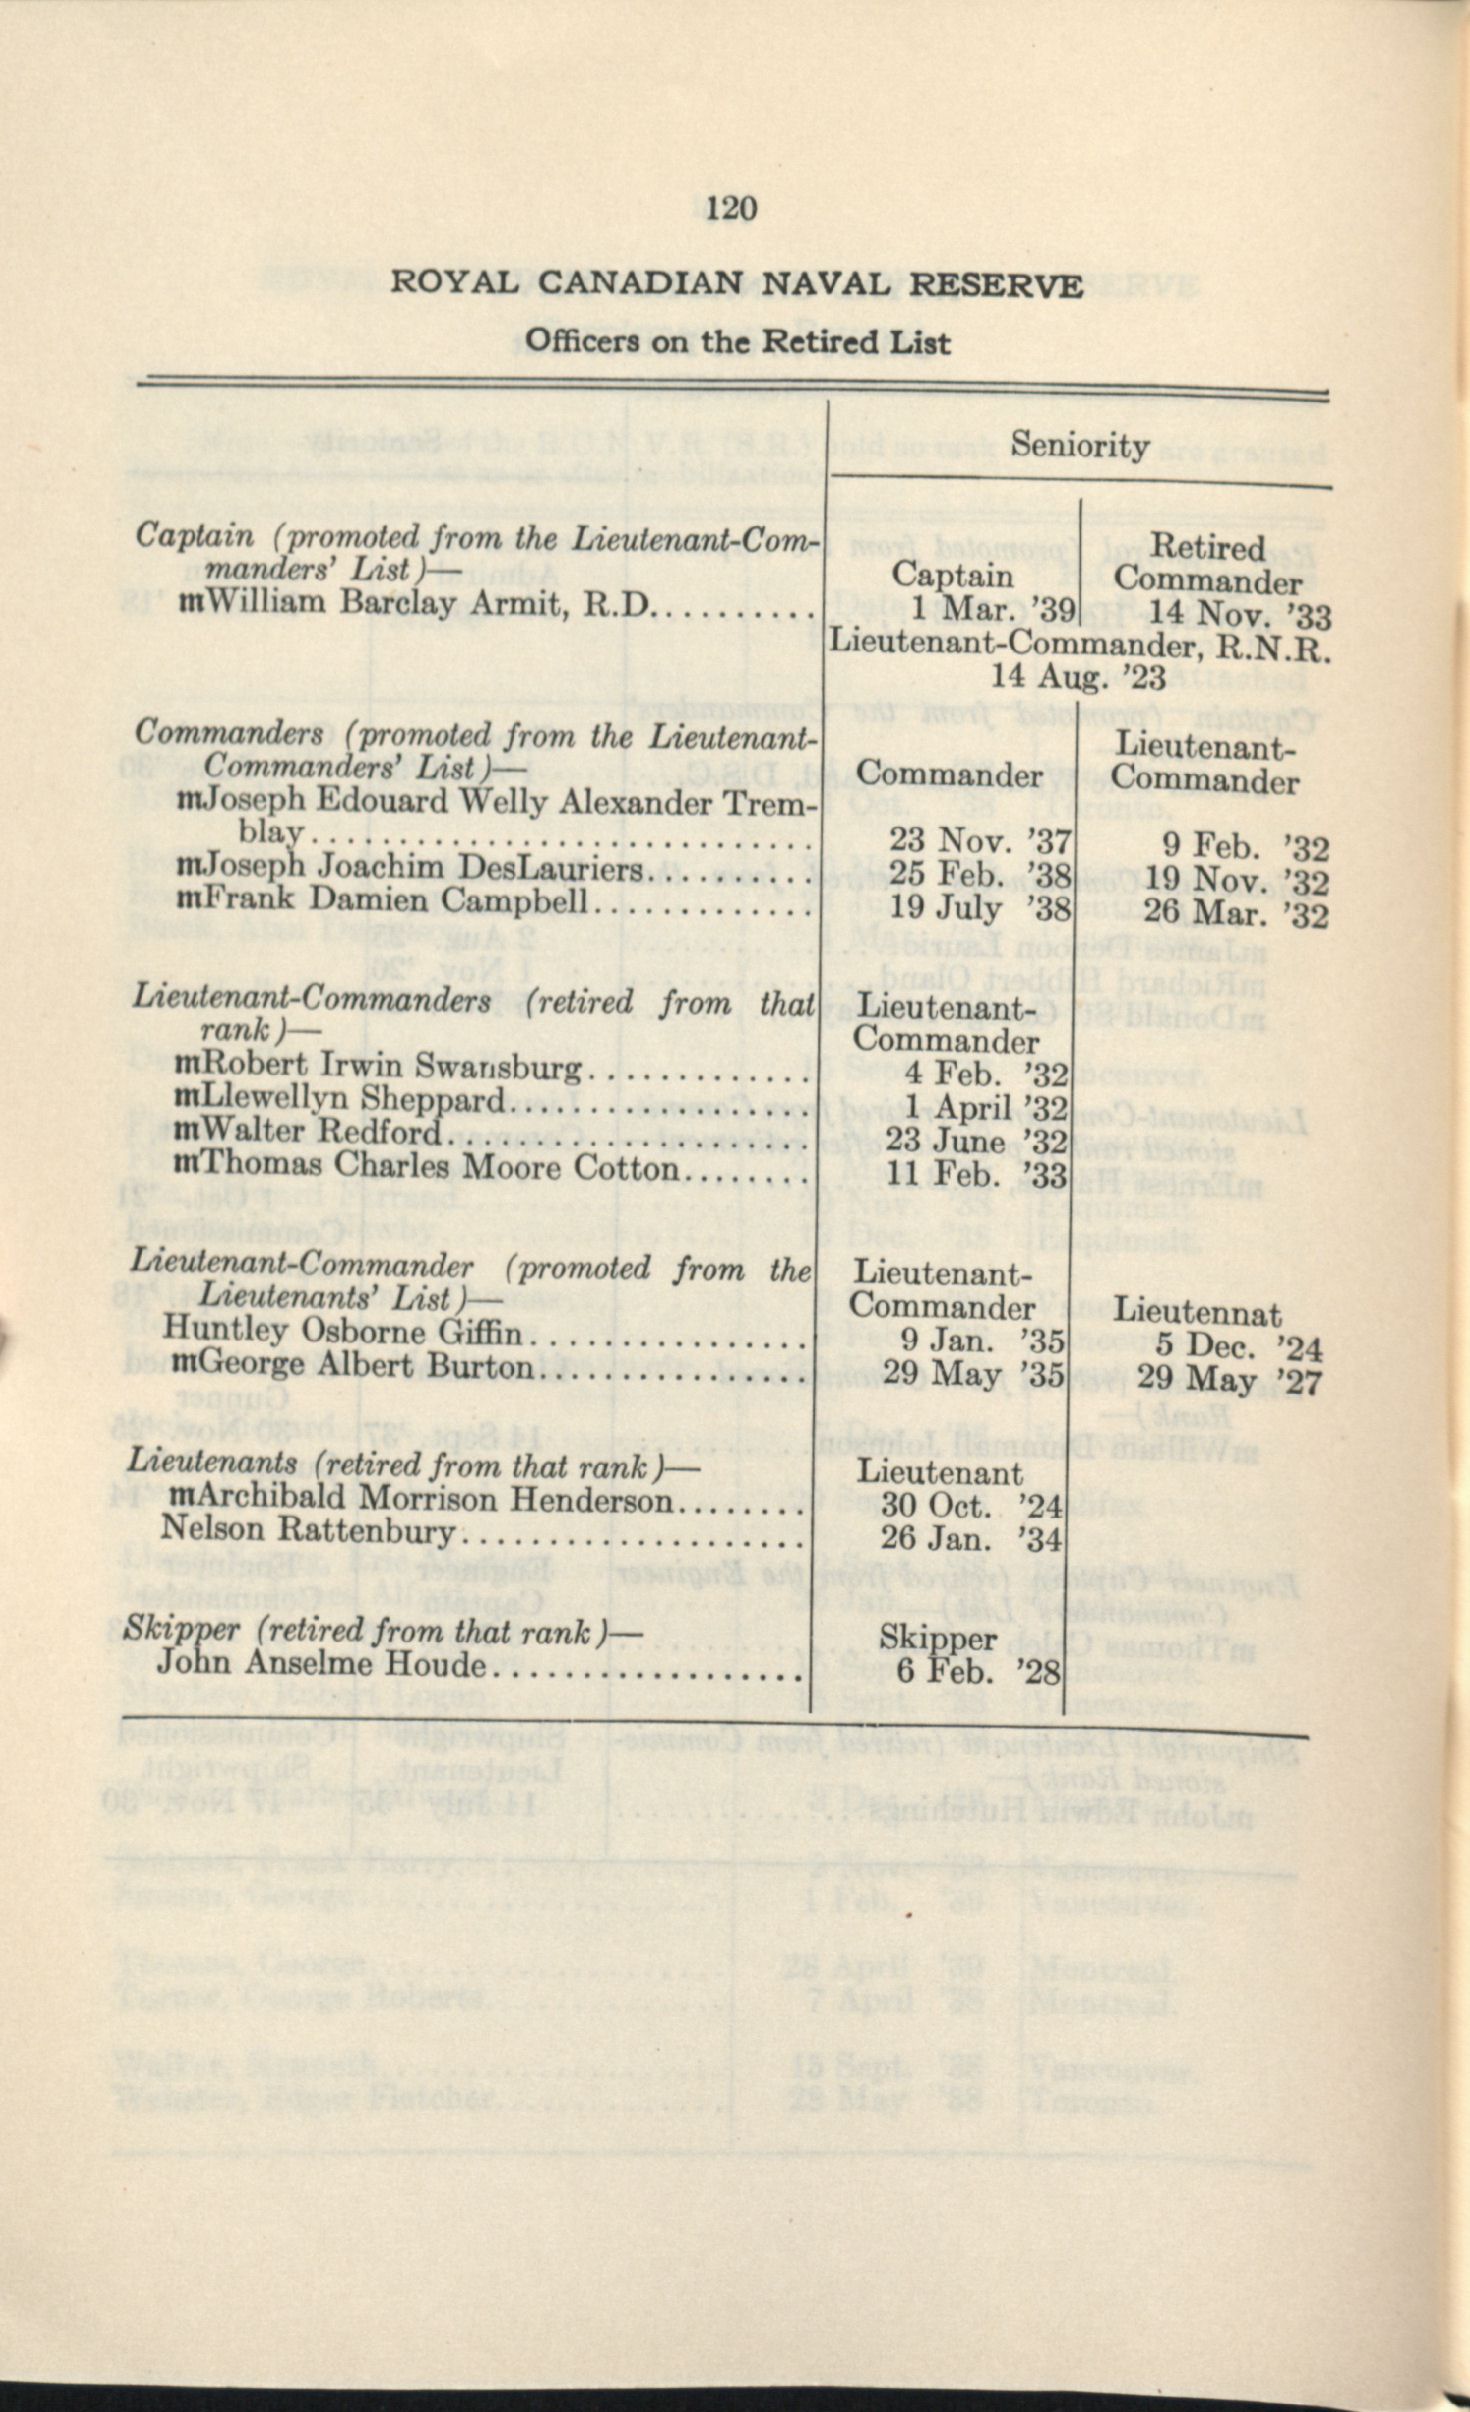 120
ROYAL CANADIAN NAVAL RESERVE
Officers on the Retired List
Seniority
Captain (promoted from the Lieutenant-Com-
manders' List)—
Captain
Retired
Commander
mWilliam Barclay Armit, R.D........... 1 Mar. '39 14 Nov. '33
Lieutenant-Commander, R.N.R.
14 Aug. '23
Commanders (promoted from the Lieutenant-
Commanders' List)—
Commander
Lieutenant-
Commander
mJoseph Edouard Welly Alexander Trem-
blay............................. 23 Nov. '37 9 Feb. '32
mJoseph Joachim DesLauriers.......... 25 Feb. '38 19 Nov. '32
mFrank Damien Campbell............. 19 July '38 26 Mar. '32
Lieutenant-Commanders (retired from that
rank)—
Lieutenant-
Commander
mRobert Irwin Swansburg............. 4 Feb. '32
mLlewellyn Sheppard.................. 1 April '32
mWalter Redford..................... 23 June '32
mThomas Charles Moore Cotton........ 11 Feb. '33
Lieutenant-Commander (promoted from the
Lieutenants' List)—
Lieutenant-
Commander
Lieutennat
Huntley Osborne Giffin................ 9 Jan. '35 5 Dec. '24
mGeorge Albert Burton................ 29 May '35 29 May '27
Lieutenants (retired from that rank)—
Lieutenant
mArchibald Morrison Henderson........ 30 Oct. '24
Nelson Rattenbury.................... 26 Jan. '34
Skipper (retired from that rank)—
Skipper
John Anselme Houde.................. 6 Feb. '28